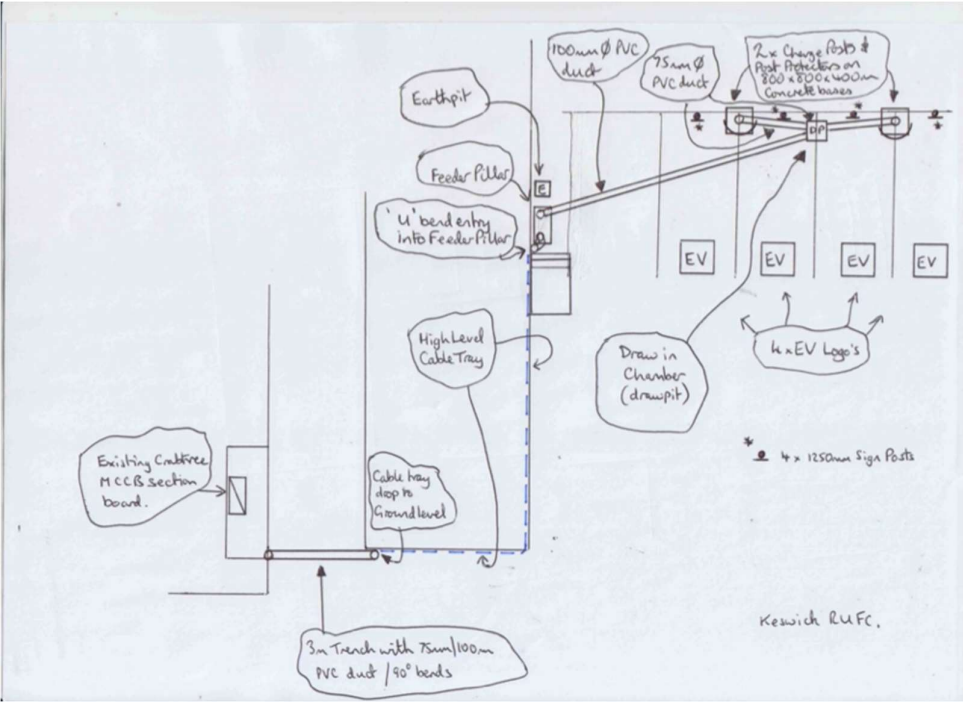 100mm Ø PVC
duct
75mm Ø
PVC duct
2 x Charge Posts &
Post Protectors on
800 x 800 x 400m
Concrete bases
Earthpit
Feeder Pillar
E
'U' bend entry
into Feeder Pillar
DP
EV
EV
EV
EV
High Level
Cable Tray
Draw in
Chamber
(drawpit)
4 x EV Logo's
* 4 x 1250mm Sign Posts
Existing Crabtree
MCCB section
board.
Cable tray
drop to
Ground level
3m Trench with 75mm/100m
PVC duct / 90° bends
Keswick RUFC.